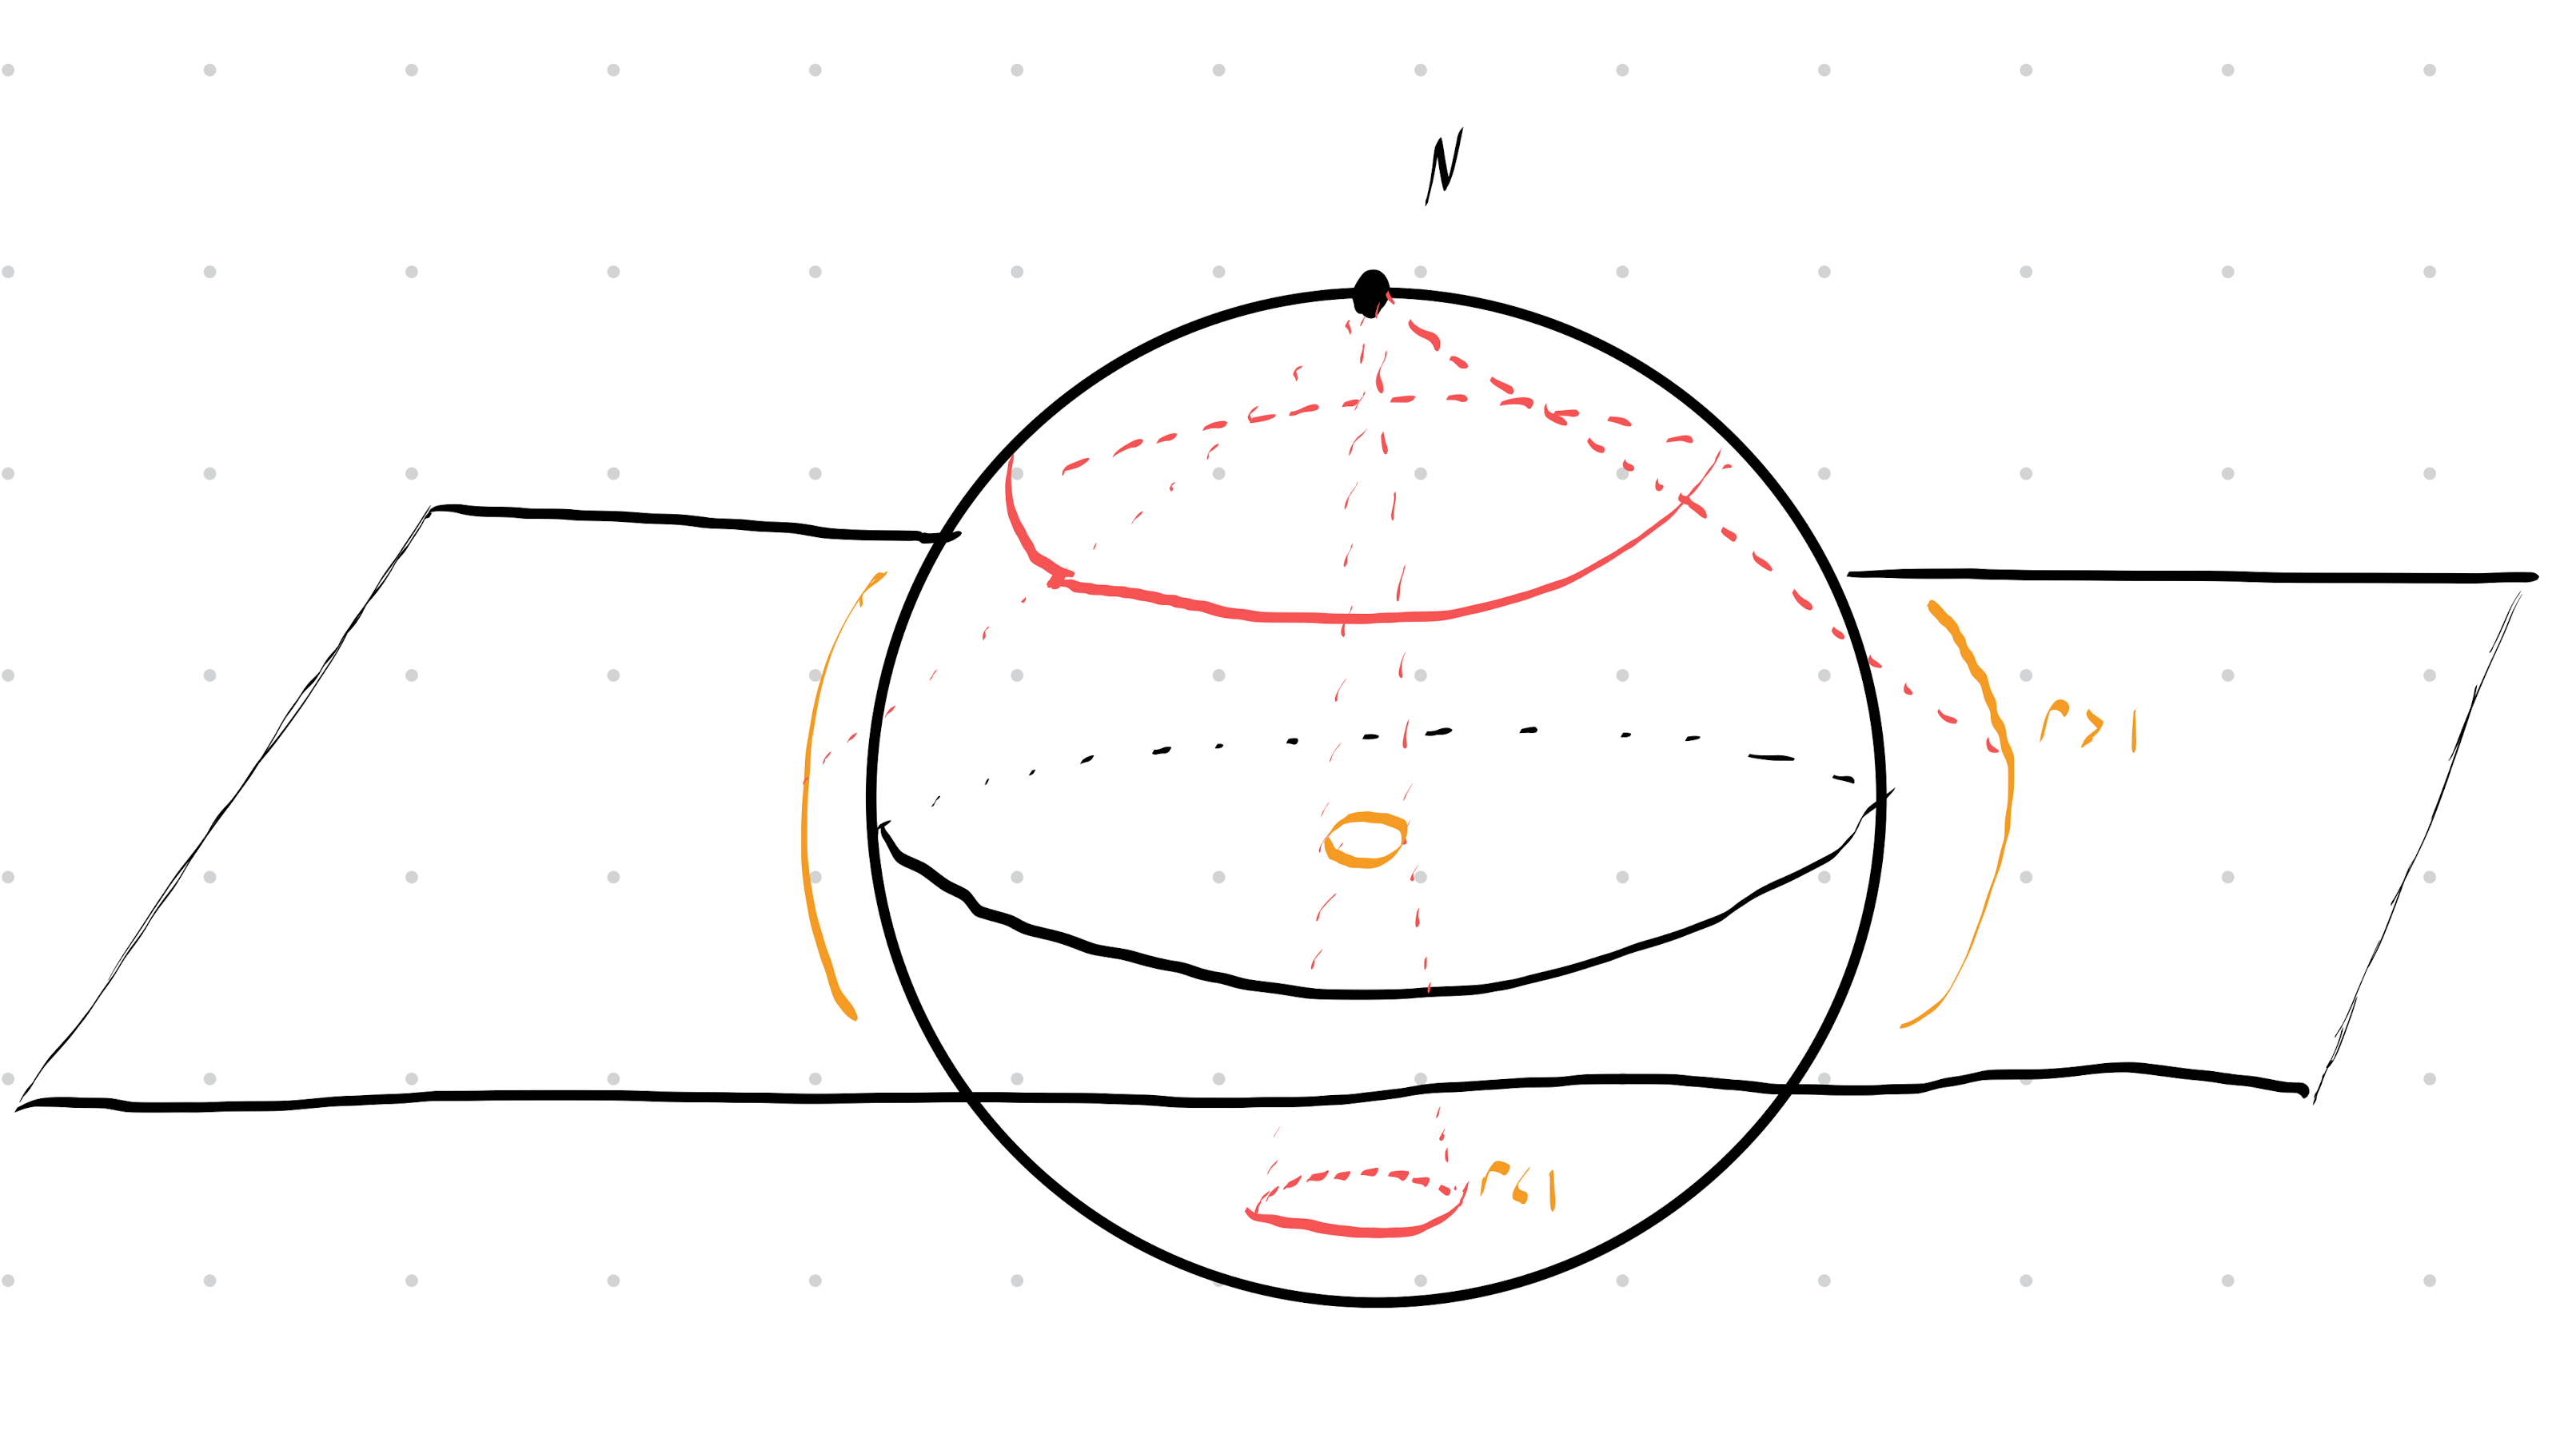 N
r>1
r<1